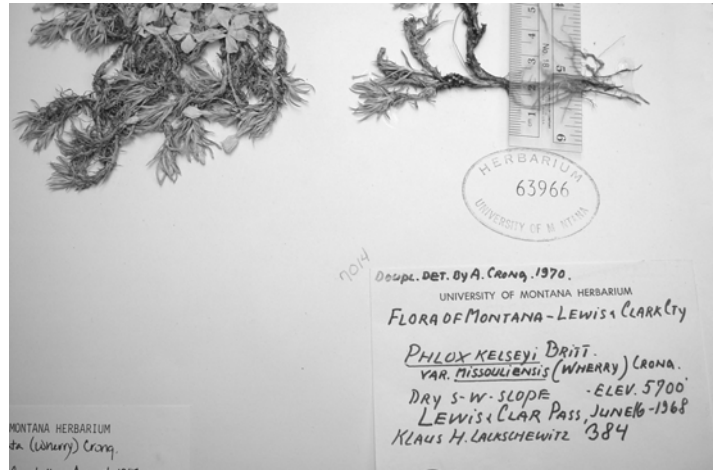 HERBARIUM
63966
UNIVERSITY OF M NTANA
7014
DOUPL. DET. By A. CRONQ. 1970.
UNIVERSITY OF MONTANA HERBARIUM
FLORA OF MONTANA - LEWIS & CLARK CTY
PHLOX KELSEYI BRITT.
VAR. MISSOULIENSIS (WHERRY) CRONQ.
DRY S-W-SLOPE - ELEV. 5700'
LEWIS & CLAR PASS, JUNE 16-1968
KLAUS H. LACKSCHEWITZ 384
MONTANA HERBARIUM
ta (Wherry) Cronq.